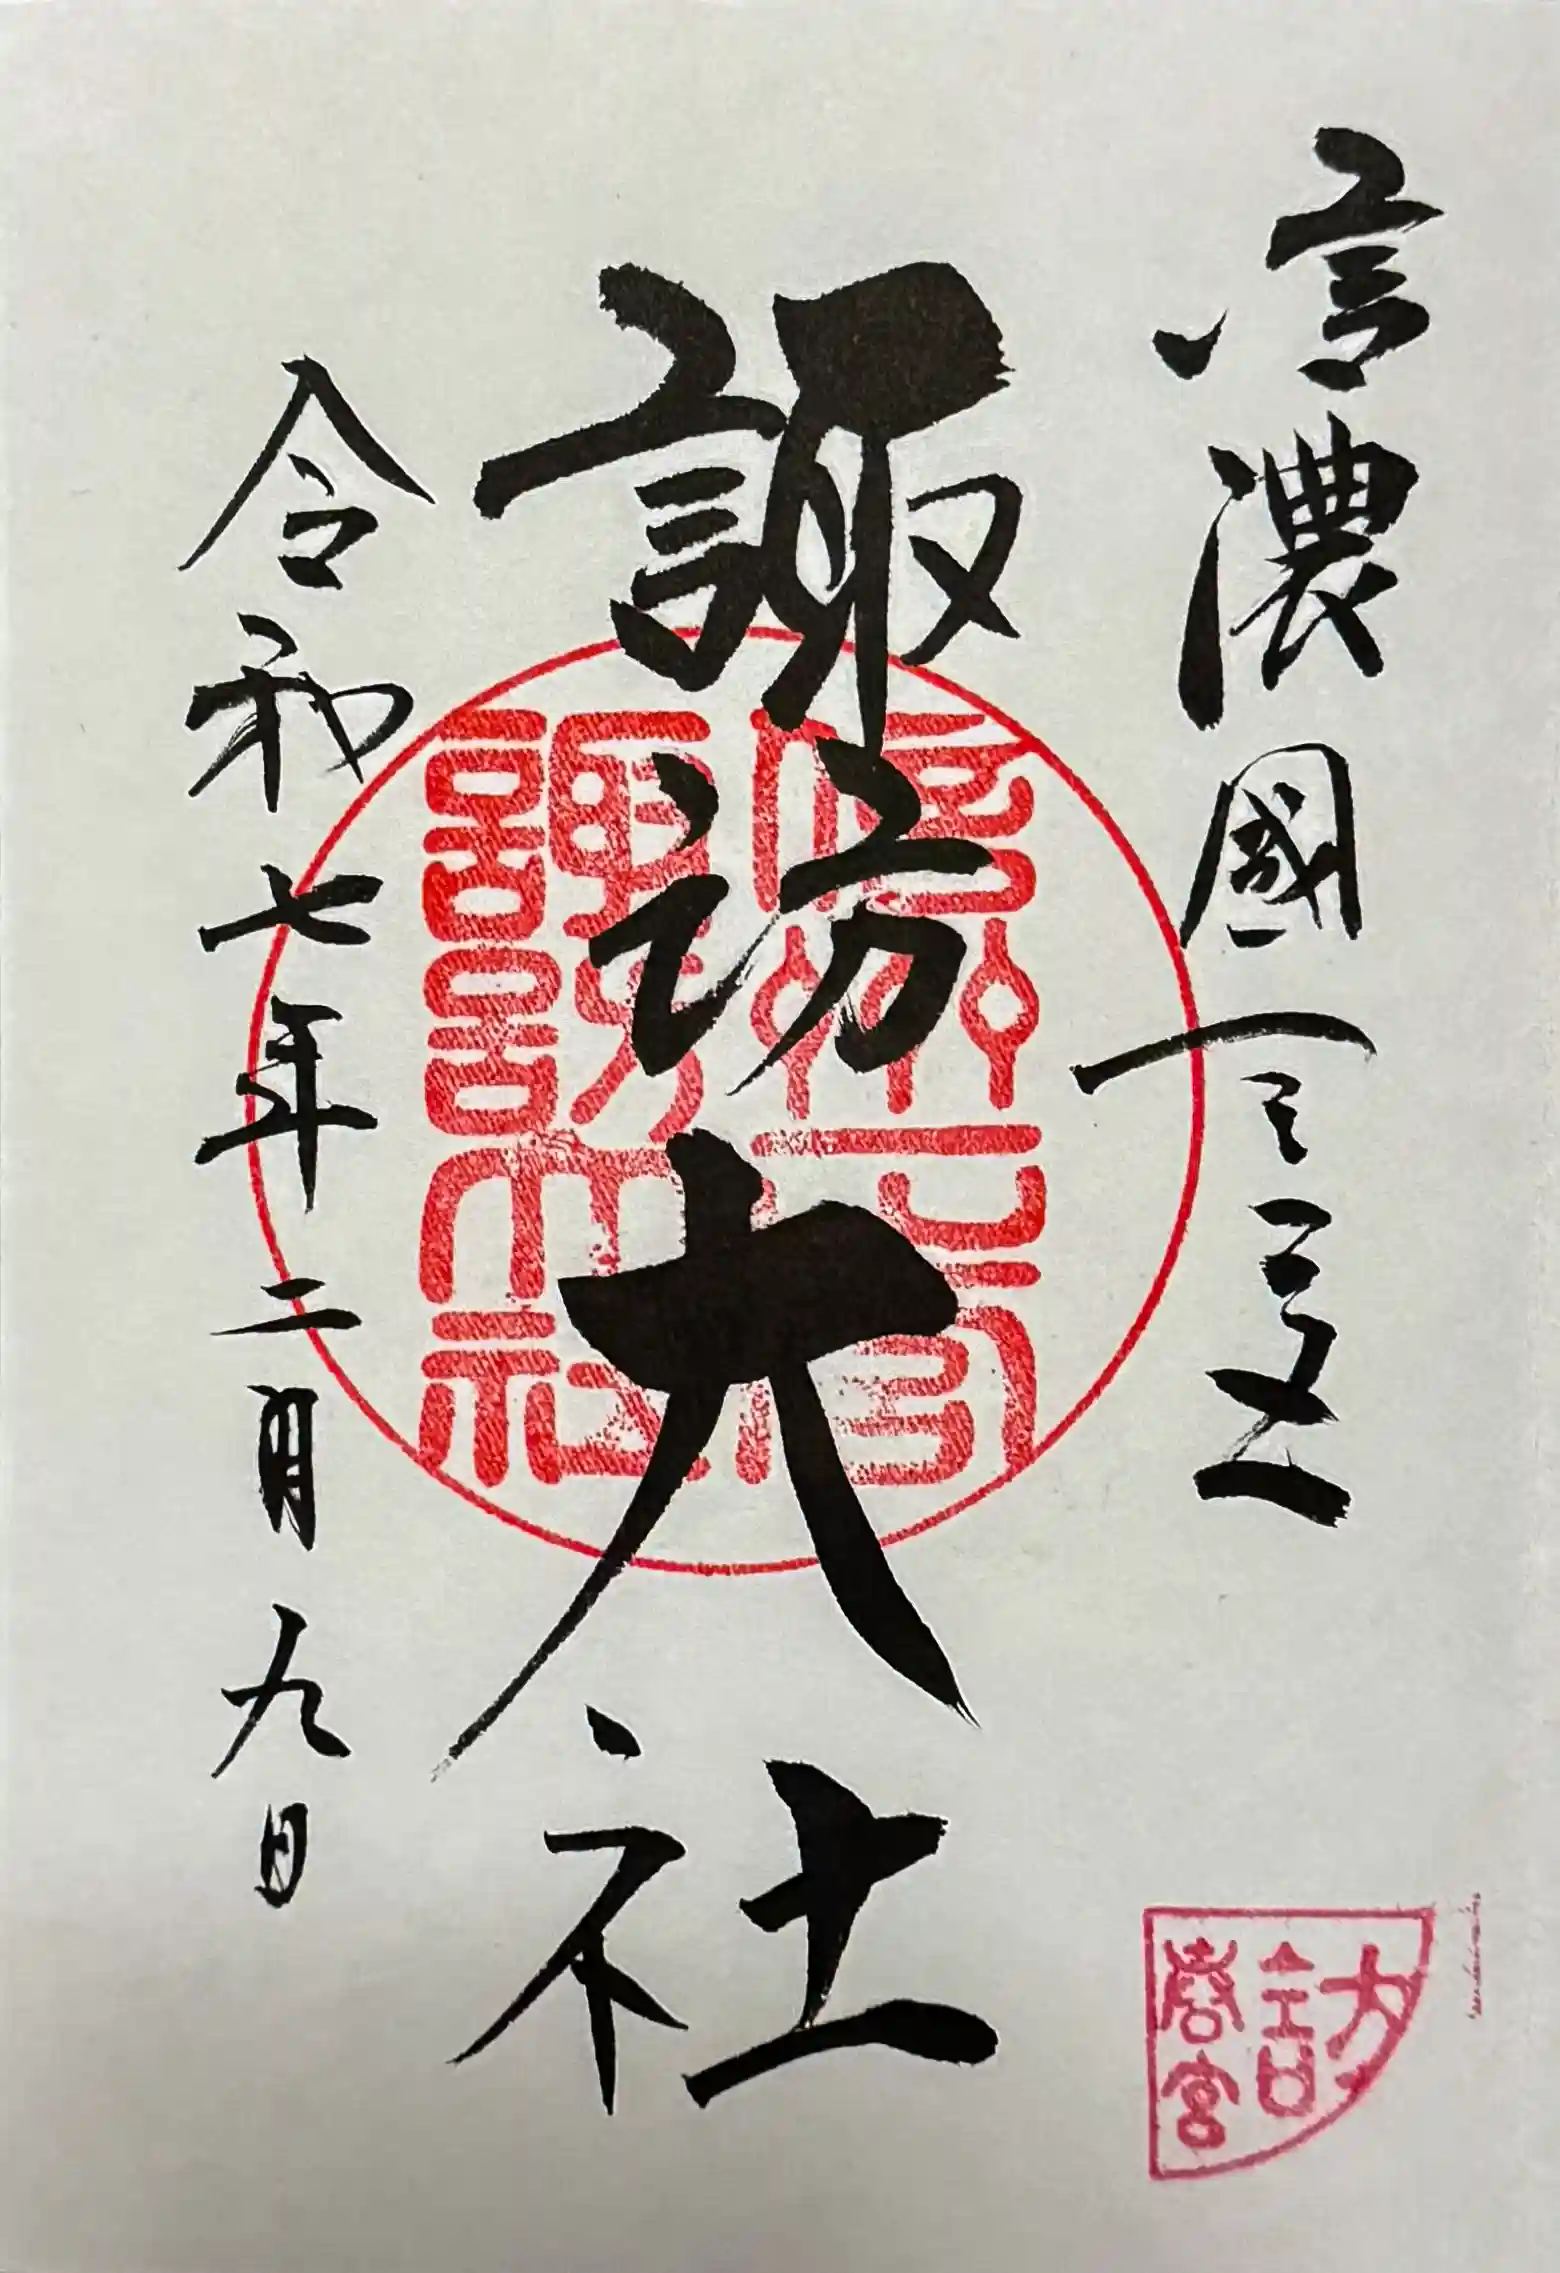 信濃國一之宮
諏訪大社
令和七年二月九日
信州一之宮
諏訪大社
訪
春宮